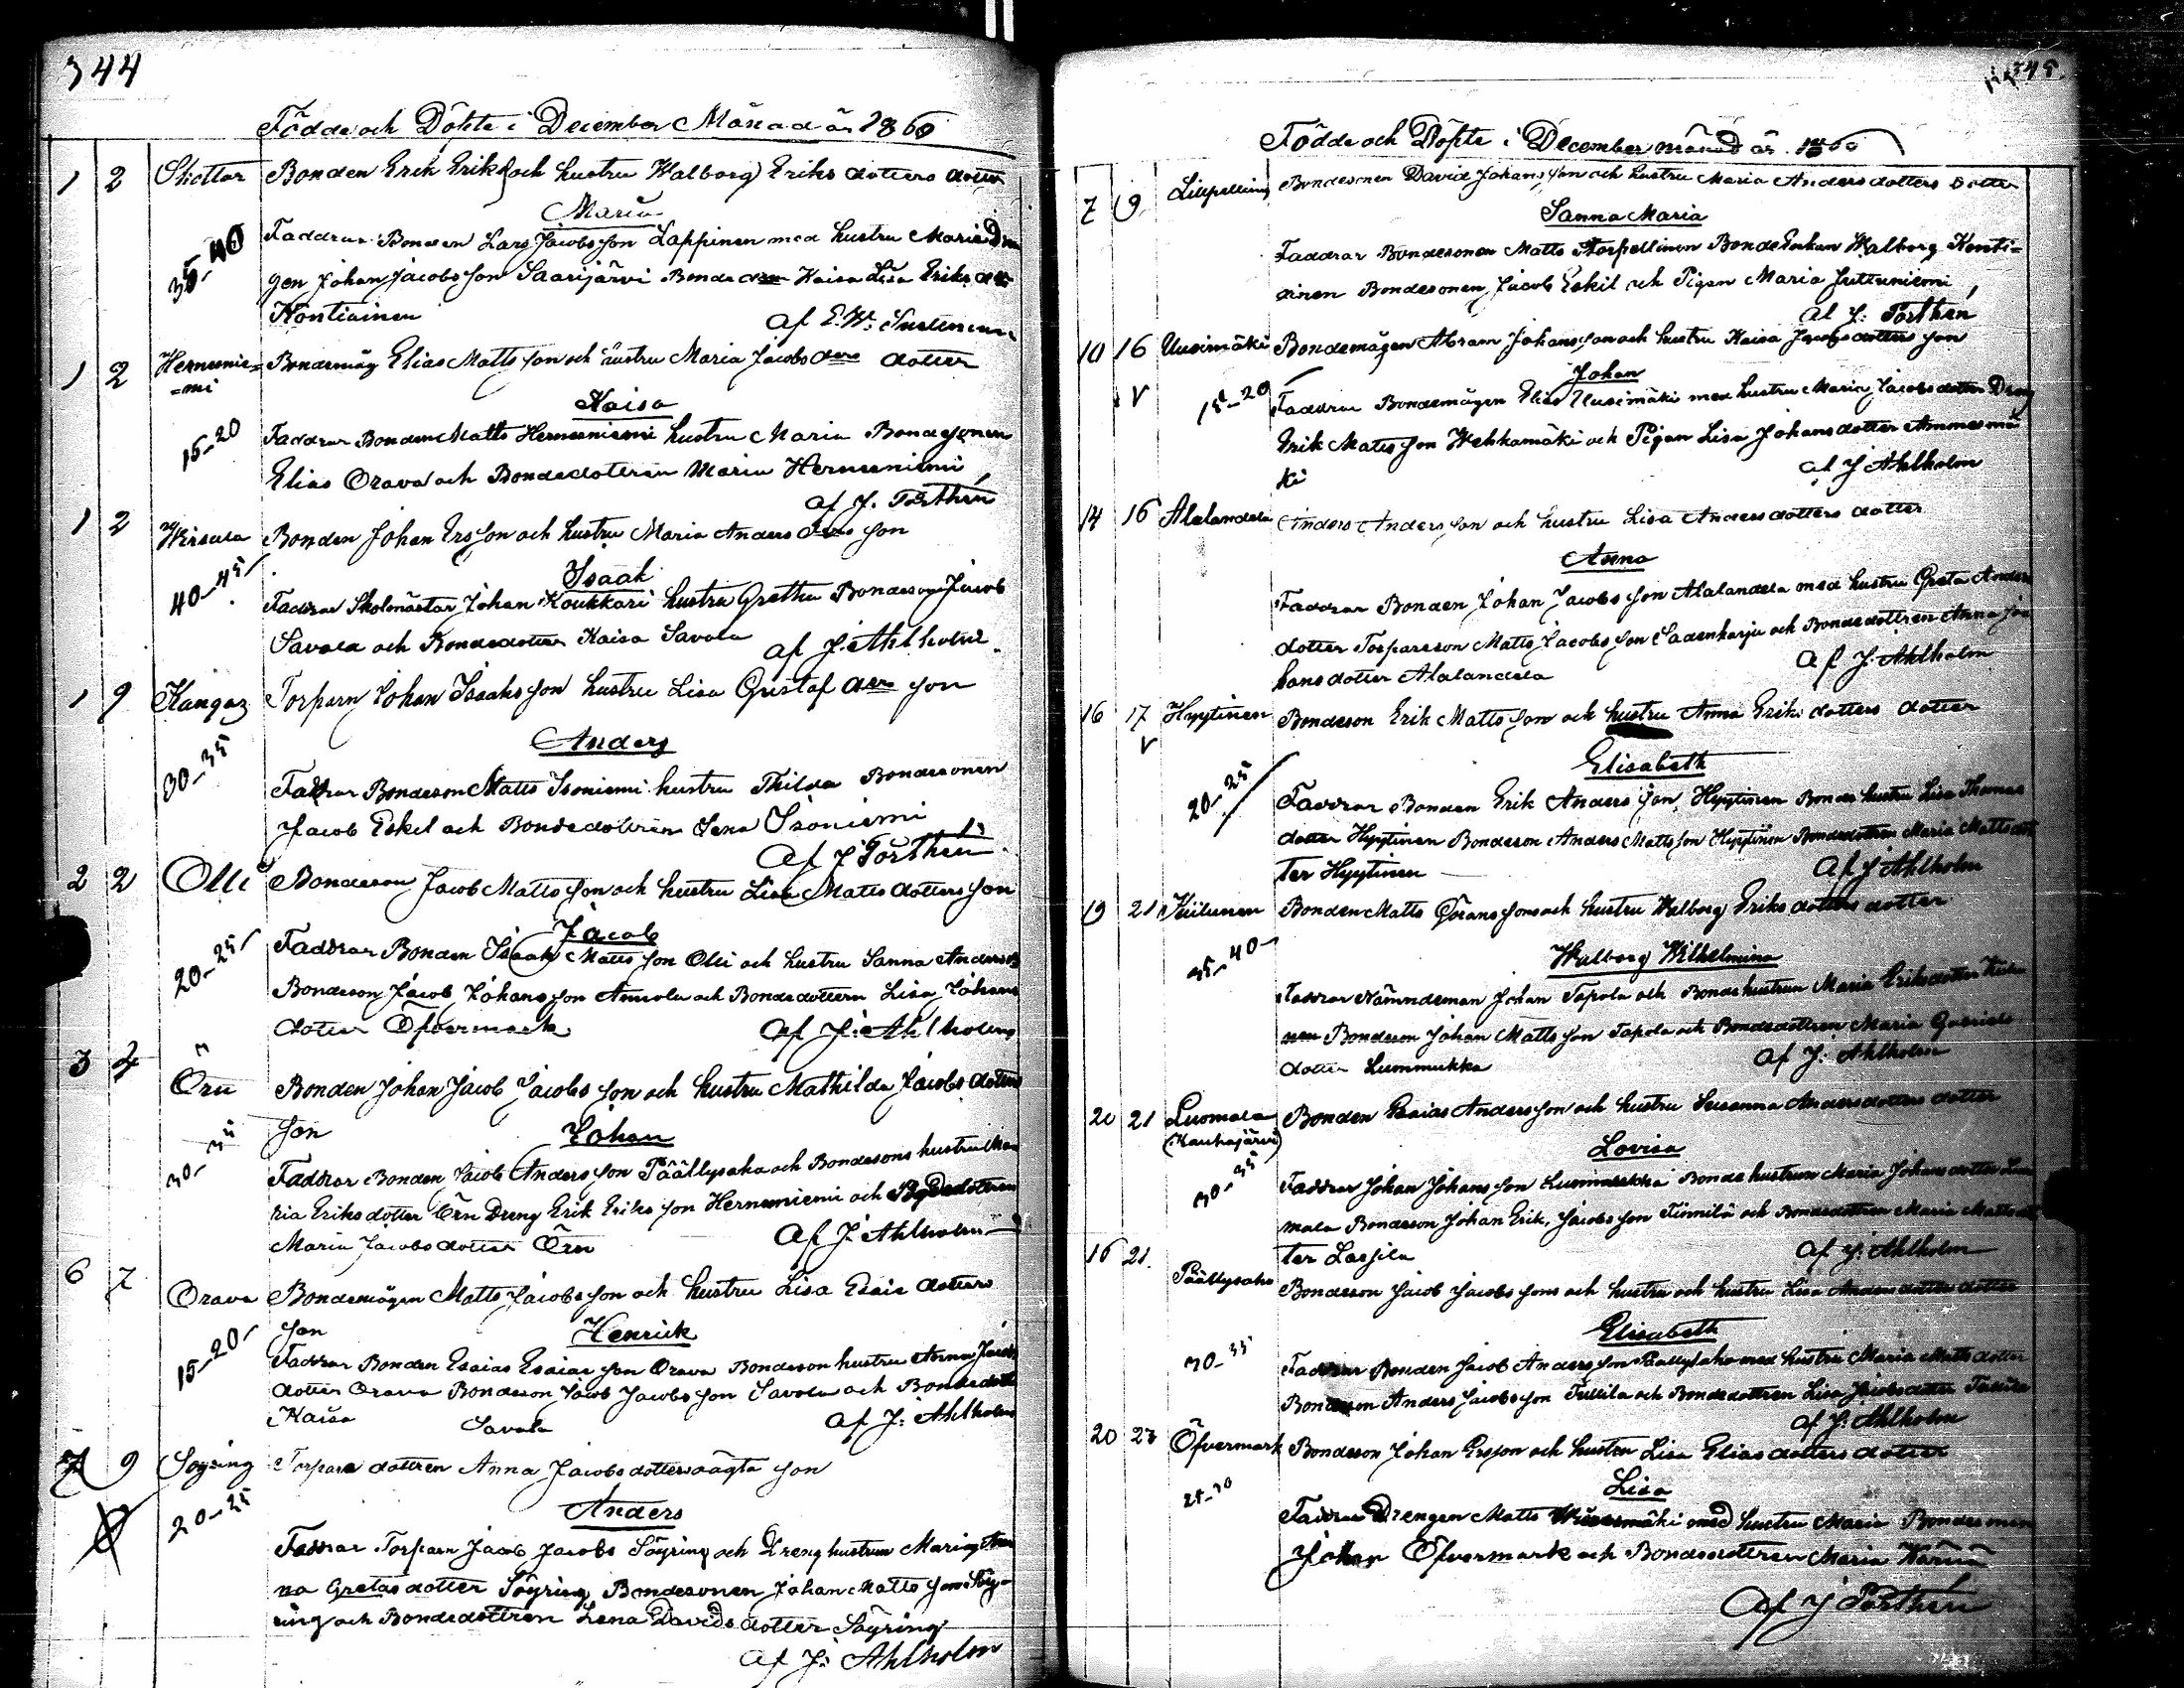 344
Födde och Döpte i December Månad år 1860
1 2 Bonden Erik Eriks och hustru Walborg Eriks dotters dotter
Maria
Faddrar Bonden Lars Jacobs son Lappinen med hustru Maria
35-40
gen Johan Jacobs son Saarijärvi Kaisa Lisa Eriks
Kontiainen af
1 2 Hernesnie=
=mi
Bondemåg Elias Matts son och hustru Maria Jacobs ders dotter
Kaisa
15-20
Faddrar Bonden Matts Hernesniemi hustru Maria Bondesonen
Elias Orava och Bondedottren Maria Hernesniemi
af J. Forthén
1 2 Wirsula Bonden Johan Ersson och hustru Maria Anders ders son
Isaak
40-45
Faddrar Skolmästar Johan Koukkari hustru Gretha Bondeson Jacob
Savola och Bondedotter Kaisa Savola af J. Ahlholm
1 9 Kangas Torparn Johan Isaaks son hustru Lisa Gustaf ders son
Anders
30-35
Faddrar Bondeson Matts Isoniemi hustru Thilda Bondesonen
Jacob Eskel och Bondedottren Lena Isoniemi
af J Forthén
2 2 Olli Bondeson Jacob Matts son och hustru Lisa Matts dotters son
Jacob
20-25
Faddrar Bonden Isaak Matts son Olli och hustru Sanna Anders
Bondeson Jacob Johans son Annola och Bondedottern Lisa Johans
dotter Öfvermark af J. Ahlholm
3 4 Örn Bonden Johan Jacob Jacobs son och hustru Mathilda Jacobs dotters
son Johan
30-35
Faddrar Bonden Jacob Anders son Päällysaho och Bondesons hustru Ma
ria Eriks dotter Örn Dreng Erik Eriks son Hernesniemi och
Maria Jacobs dotter Örn af J. Ahlholm
6 7 Orava Bondemågen Matts Jacobs son och hustru Lisa Esais dotters
son Henrick
15-20
Faddrar Bonden Esaias Esaias son Orava Bondeson hustru Anna Jacobs
dotter Orava Bondeson Jacob Jacobs son Savola och Bondedott
Kaisa Savola af J. Ahlholm
7 9 Söyring Torpare dottren Anna Jacobs dotters oägta son
20-25
Anders
Faddrar Torparn Jacob Jacobs Söyring och Dreng hustrun Maria
na Gretas dotter Söyring Bondesonen Johan Matts son Söy-
ring och Bondedottren Lena Davids dotter Söyring
af J. Ahlholm
345.
Födde och Döpte i December månad år 1860
7 9 Bondesonen David Johans son och hustru Maria Anders dotters dotter
Sanna Maria
Faddrar Bondesonen Matts Walborg Konti=
ainen Bondesonen Jacob Eskil och Pigan Maria
af J. Forthén
10 16 Uusimäki Bondemågen Abram Johans son och hustru Kaisa Jacobs dotters son
Johan
15-20
Faddrar Bondemågen Elias Uusimäki med hustru Maria Jacobs dotter Dreng
Erik Matts son Wehkamäki och Pigan Lisa Johans dotter Ammesmä
ki af J Ahlholm
14 16 Alalandela Anders Anders son och hustru Lisa Anders dotters dotter
Anna
Faddrar Bonden Johan Jacobs son Alalandela med hustru Greta Anders
dotter Torpareson Matts Jacobs son Sadenharju och Bondedottren Anna Jo
hans dotter Alalandela af J. Ahlholm
16 17 Hyytinen Bondeson Erik Matts son och hustru Anna Eriks dotters dotter
Elisabeth
20-25
Faddrar Bonden Erik Anders son Hyytinen Bonde hustru Lisa Thomas
dotter Hyytinen Bondeson Anders Matts son Hyytinen Bondedottren Maria Matts dot
ter Hyytinen af J Ahlholm
19 21 Kiilunen Bonden Matts Görans sons och hustru Walborg Eriks dotters dotter
Walborg Wilhelmina
35-40
Faddrar Nämndeman Johan Tapola och Bonde hustrun Maria Eriks dotter
nen Bondeson Johan Matts son Tapola och Bondedottren Maria Gabriels
dotter Lummukka af J. Ahlholm
20 21 Luomala
(Kauhajärvi)
Bonden Esaias Anders son och hustru Susanna Anders dotters dotter
Lovisa
30-35
Faddrar Johan Johans son Bonde hustrun Maria Johans dotter Luo
mala Bondeson Johan Erik Jacobs son och Bondedottren Maria Matts dot
ter Lassila af J. Ahlholm
16 21. Päällysaho Bondeson Jacob Jacobs sons och hustru och hustru Lisa Anders dotter dotter
Elisabeth
30-35
Faddrar Bonden Jacob Anders son Päällysaho med hustru Maria Matts dotter
Bondeson Anders Jacobs son och Bondedottren Lisa Jacobs dotter
af J. Ahlholm
20 23 Öfvermark Bondeson Johan Ersson och hustru Lisa Elias dotters dotter
Lisa
25-30
Faddrar Drengen Matts med hustru Maria Bondesonen
Johan Öfvermark och Bondedottren Maria
af J Forthén